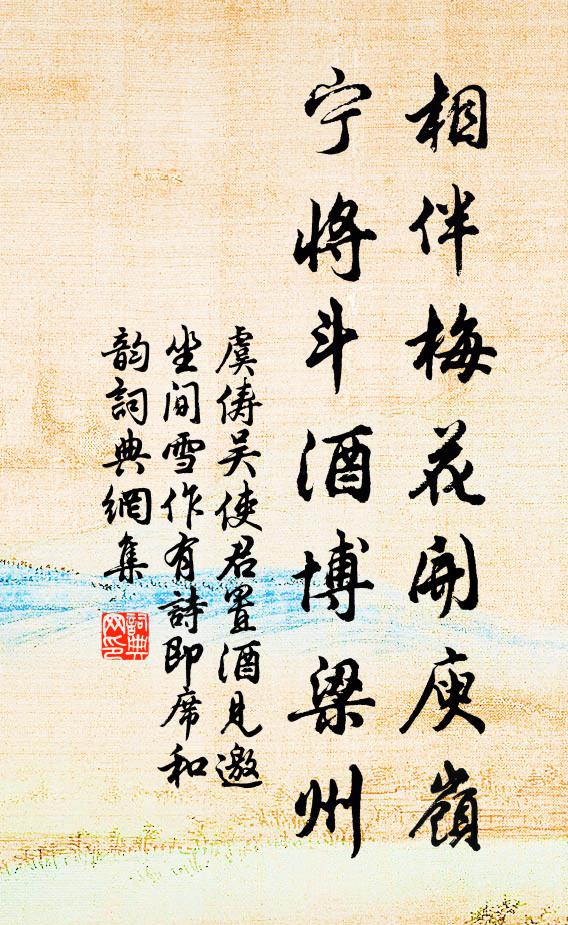 相伴梅花開庾嶺
宁將斗酒博梁州
虞儔吴使君置酒見邀
坐间雪作有詩即席和
韵詞典網集
詞典
网印